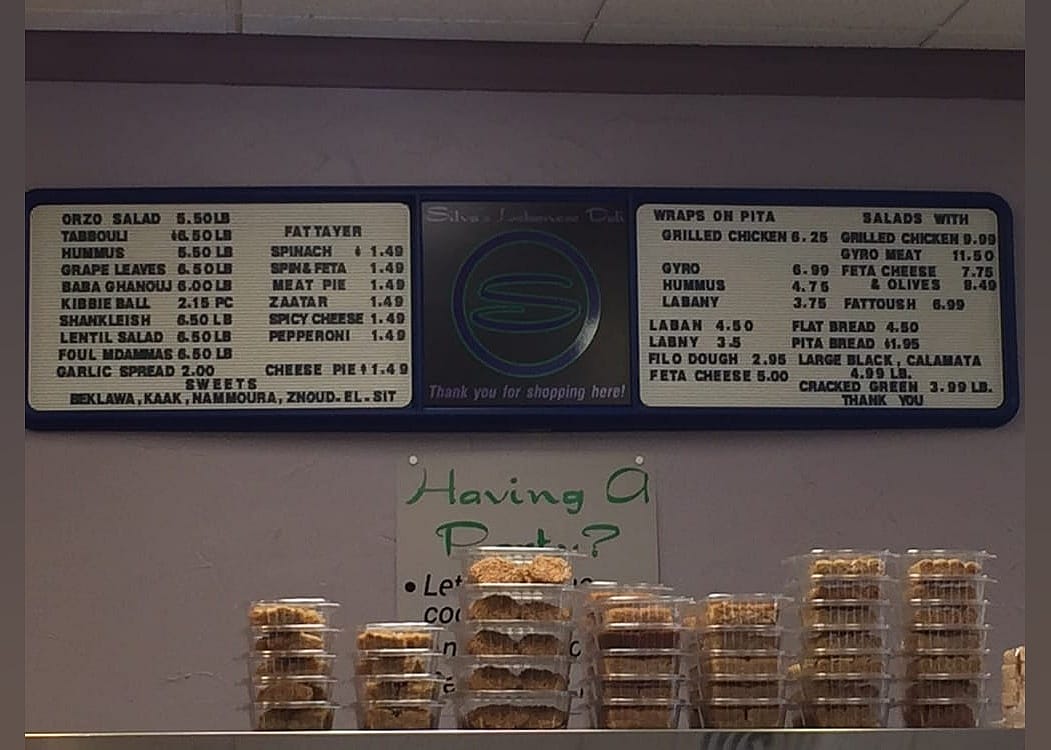 ORZO SALAD 5.50LB
TABBOULI $6.50LB
HUMMUS 5.50LB
GRAPE LEAVES 6.50LB
BABA GHANOUJ 6.00LB
KIBBIE BALL 2.15 PC
SHANKLEISH 6.50LB
LENTIL SALAD 6.50LB
FOUL MDAMMAS 6.50LB
GARLIC SPREAD 2.00
FATTAYER
SPINACH $1.49
SPIN& FETA 1.49
MEAT PIE 1.49
ZAATAR 1.49
SPICY CHEESE 1.49
PEPPERONI 1.49
CHEESE PIE $1.49
SWEETS
BEKLAWA, KAAK, NAMMOURA, ZNOUD-EL-SIT
Silva's Lebanese Deli
S
Thank you for shopping here!
WRAPS ON PITA
GRILLED CHICKEN 6.25
GYRO 6.99
HUMMUS 4.75
LABANY 3.75
SALADS WITH
GRILLED CHICKEN 9.99
GYRO MEAT 11.50
FETA CHEESE 7.75
& OLIVES 8.49
FATTOUSH 6.99
LABAN 4.50
LABNY 3.5
FILO DOUGH 2.95
FETA CHEESE 5.00
FLAT BREAD 4.50
PITA BREAD $1.95
LARGE BLACK, CALAMATA
4.99 LB.
CRACKED GREEN 3.99 LB.
THANK YOU
Having A
Party?
• Let